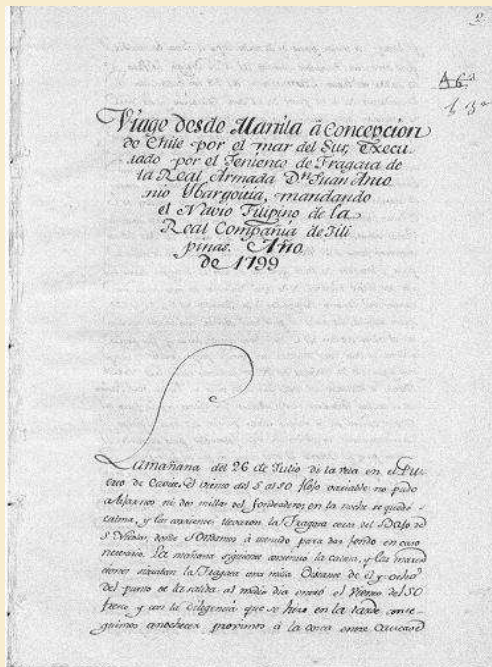 2
Viage desde Manila â Concepcion
de Chile por el mar del Sur, Execu
tado por el Teniente de Fragata de
la Real Armada Dn Juan Anto
nio Ybargoitia, mandando
el Navio Filipino de la
Real Compañia de Fili
pinas. Año
de 1799
La mañana del 26 de Julio di la vela en el Pu-
erto de Cavite, el viento del S al SO flojo variable no pudo
ni dos millas del fondeadero; en la noche se quedó
calma, y las corrientes llevaron la Fragata cerca del Bajo de
S. Nicolas, donde
necesario. La mañana siguiente continuo la calma, y las
la Fragata una milla distante de el y ocho
del punto de la salida. al medio dia entró el viento del SO
y con la diligencia que se hizo en la tarde conse-
guimos anochecer proximos à la entre